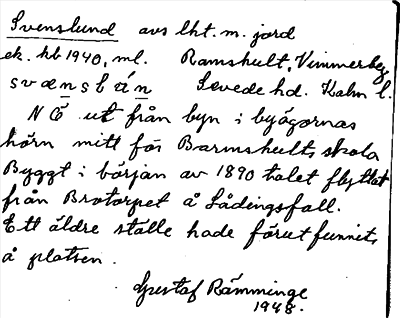 Svenslund avs lht. m. jord
ek. kb 1940, ml. Ramshult, Vimmerby
svænslún Sevede hd. Kalm l.
NÖ ut från byn i byägornas
hörn mitt för Barmshults skola
Byggt i början av 1890 talet flyttat
från Brotorpet å Lådingsfall.
Ett äldre ställe hade förut funnits
å platsen.
Gustaf Rämminge
1948.